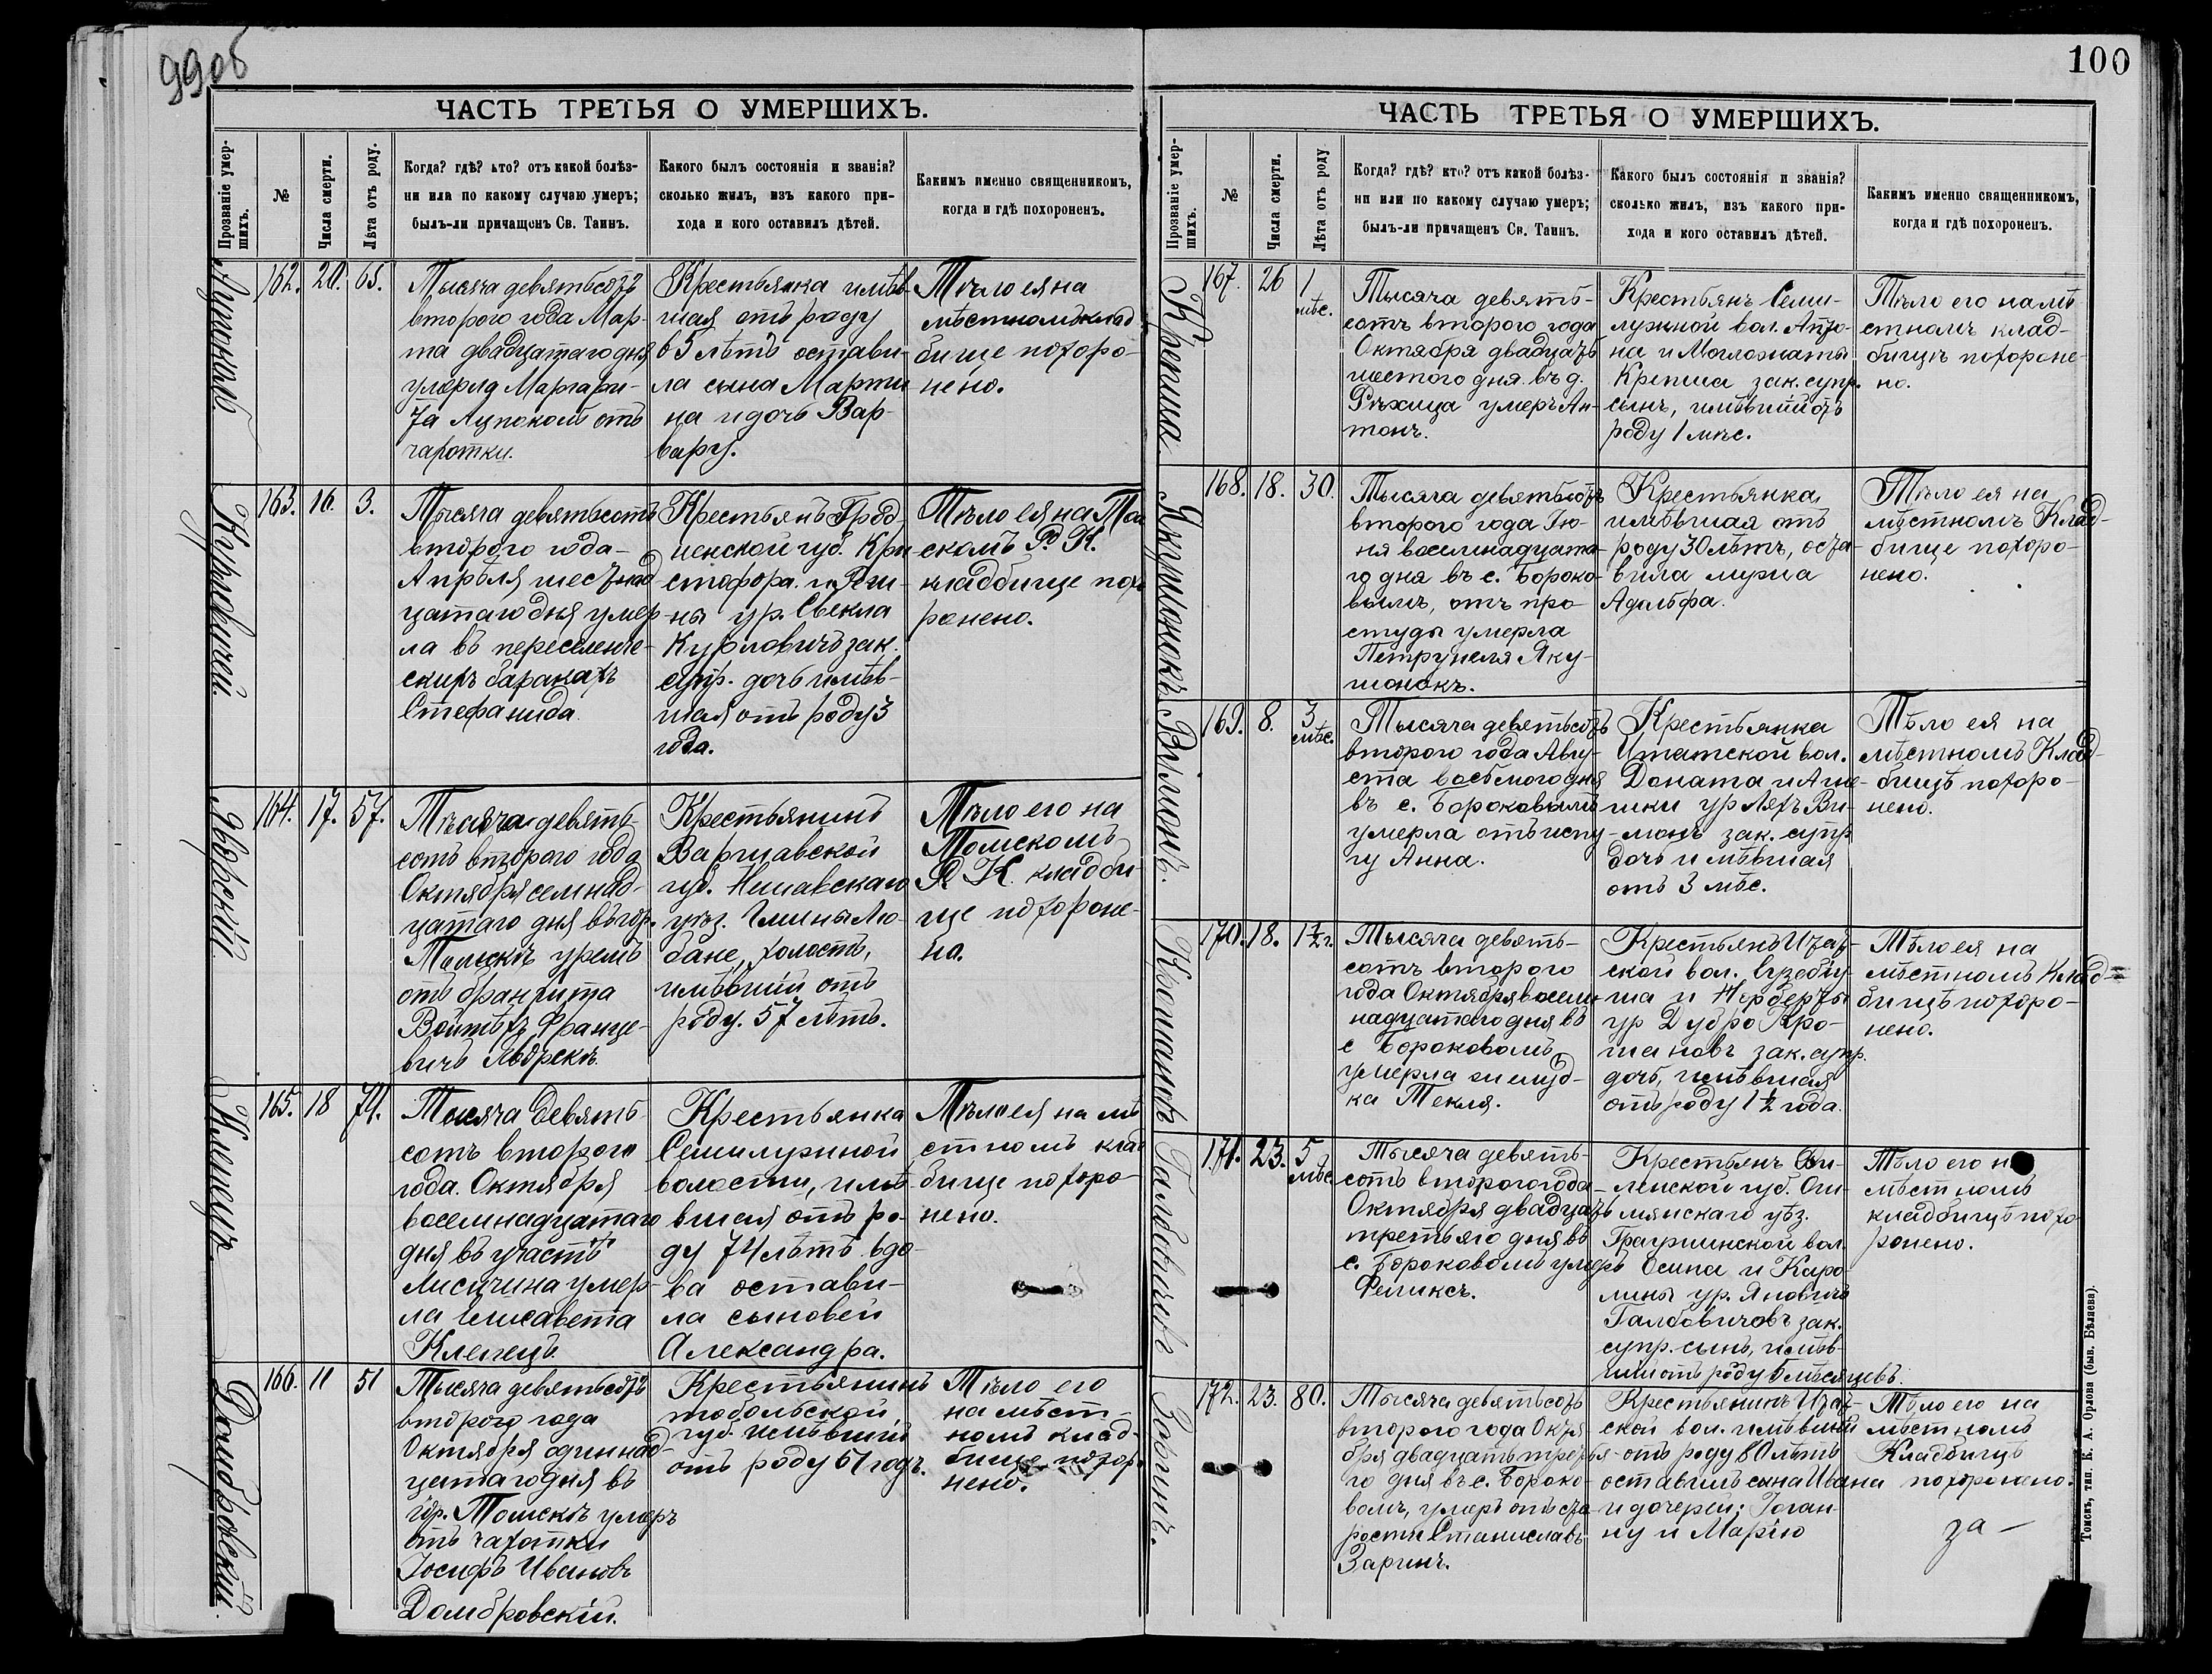 99об
ЧАСТЬ ТРЕТЬЯ О УМЕРШИХЪ.
Прозваніе умер-
шихъ.
№
Числа смерти.
Лѣта отъ роду.
Когда? гдѣ? кто? отъ какой болѣз-
ни или по какому случаю умеръ;
былъ-ли причащенъ Св. Таинъ.
Какого былъ состоянія и званія?
сколько жилъ, изъ какого при-
хода и кого оставилъ дѣтей.
Какимъ именно священникомъ,
когда и гдѣ похороненъ.
162. 20. 65.
Тысяча девятьсотъ
второго года Мар-
та двадцатаго дня
умерла Маргари-
та отъ
чахотки.
Крестьянка имѣв-
шая отъ роду
65 лѣтъ остави-
ла сына Марти
на и дочь Вар-
вару.
Тѣло ея на
мѣстномъ клад
бище похоро-
нено.
Курловичей.
163. 16. 3.
Тысяча девятьсотъ
второго года
Апрѣля шестнад
цатаго дня умер
ла въ переселенче-
скихъ баракахъ
Стефанида
Крестьянъ Грод-
ненской губ. Кри
стофора и Яни-
ны ур. Свекла
Курловичъ зак.
супр. дочь имѣв-
шая отъ роду 3
года.
Тѣло ея на Том
скомъ Р. К.
кладбище похо
ронено.
Яворскій.
164. 17. 57.
Тысяча девять-
сотъ второго года
Октября семнад-
цатаго дня въ гор.
Томскѣ умеръ
отъ бронхита
Войтѣхъ Франце-
вичъ
Крестьянинъ
Варшавской
губ. Нешавскаго
уѣз. Гмины Лю-
бане, холостъ,
имѣвшій отъ
роду 57 лѣтъ.
Тѣло его на
Томскомъ
Р. К. кладби-
ще похороне-
но.
Клепецъ
165. 18 74.
Тысяча девять
сотъ второго
года Октября
восемнадцатаго
дня въ участкѣ
Лисицина умер-
ла Елисавета
Клепецъ
Крестьянка
Семилужной
волости, имѣ-
вшая отъ ро-
ду 74 лѣтъ вдо-
ва остави-
ла сыновей
Александра.
Тѣло ея на мѣ
стномъ клад
бище похоро-
нено.
Домбровскій.
166. 11 51
Тысяча девятьсотъ
второго года
Октября одиннад-
цатаго дня въ
гор. Томскѣ умеръ
отъ чахотки
Іосифъ Ивановъ
Домбровскій.
Крестьянинъ
тобольской
губ. имѣвшій
отъ роду 51 годъ.
Тѣло его
на мѣст-
номъ клад-
бище похоро
нено.
100
ЧАСТЬ ТРЕТЬЯ О УМЕРШИХЪ.
Прозваніе умер-
шихъ.
№
Числа смерти.
Лѣта отъ роду
Когда? гдѣ? кто? отъ какой болѣз-
ни или по какому случаю умеръ;
былъ-ли причащенъ Св. Таинъ.
Какого былъ состоянія и званія?
сколько жилъ, изъ какого при-
хода и кого оставилъ дѣтей.
Какимъ именно священникомъ,
когда и гдѣ похороненъ.
Крепша.
167. 26 1
мѣс.
Тысяча девять-
сотъ второго года
Октября двадцать
шестого дня въ д.
умеръ Ан-
тонъ.
Крестьянъ Семи-
лужной вол. Анто-
на и
Крепша зак. супр.
сынъ, имѣвшій отъ
роду 1 мѣс.
Тѣло его на мѣ
стномъ клад-
бищѣ похороне-
но.
Якушонокъ
168. 18. 30.
Тысяча девятьсотъ
второго года Ію-
ня восемнадцата-
го дня въ с. Бороко-
вымъ, отъ про-
студы умерла
Петрунеля Яку-
шонокъ.
Крестьянка,
имѣвшая отъ
роду 30 лѣтъ, оста-
вила мужа
Адольфа.
Тѣло ея на
мѣстномъ Клад-
бище похоро-
нено.
Вимонъ.
169. 8. 3
мѣс.
Тысяча девятьсотъ
второго года Авгу-
ста восьмого дня
въ с. Бороковымъ
умерла отъ испу-
гу Анна.
Крестьянка
Ишатской вол.
Доната и Агне-
шки ур Ляхъ Ви-
монъ зак. супр
дочь имѣвшая
отъ 3 мѣс.
Тѣло ея на
мѣстномъ Клад-
бищѣ похоро-
нено.
170. 18. 1½ г.
Тысяча девять-
сотъ второго
года Октября восем-
надцатаго дня въ
с Бороковомъ
умерла
Текля.
Крестьянъ
ской вол. Евзебіу-
ша и
ур Дубро Кро-
шановъ зак. супр.
дочь, имѣвшая
отъ роду 1½ года.
Тѣло ея на
мѣстномъ Клад-
бищѣ похоро-
нено.
Галдовичовъ
171. 23. 5
мѣс
Тысяча девять-
сотъ второго года
Октября двадцать
третьяго дня въ
с. Бороковомъ умеръ
Феликсъ.
Крестьянъ Ви-
ленской губ. Ош-
мянскаго уѣз.
Граужишской вол.
Осипа и Каро-
лины ур. Яновичъ
Галдовичовъ зак.
супр. сынъ, имѣв-
шій отъ роду 5 мѣсяцевъ.
Тѣло его на
мѣстномъ
кладбищѣ похо
ронено.
Заринъ.
172. 23. 80.
Тысяча девятьсотъ
второго года Октя
бря двадцать третья-
го дня въ с. Бороко-
вомъ, умеръ отъ ста-
рости Станиславъ
Заринъ.
Крестьянинъ
ской вол. имѣвшій
отъ роду 80 лѣтъ
оставилъ сына Ивана
и дочерей: Іоган-
ну и Марію
Тѣло его на
мѣстномъ
Кладбищѣ
похоронено.
за —
Томскъ, тип. К. А. Орлова (быв. Бѣляева).